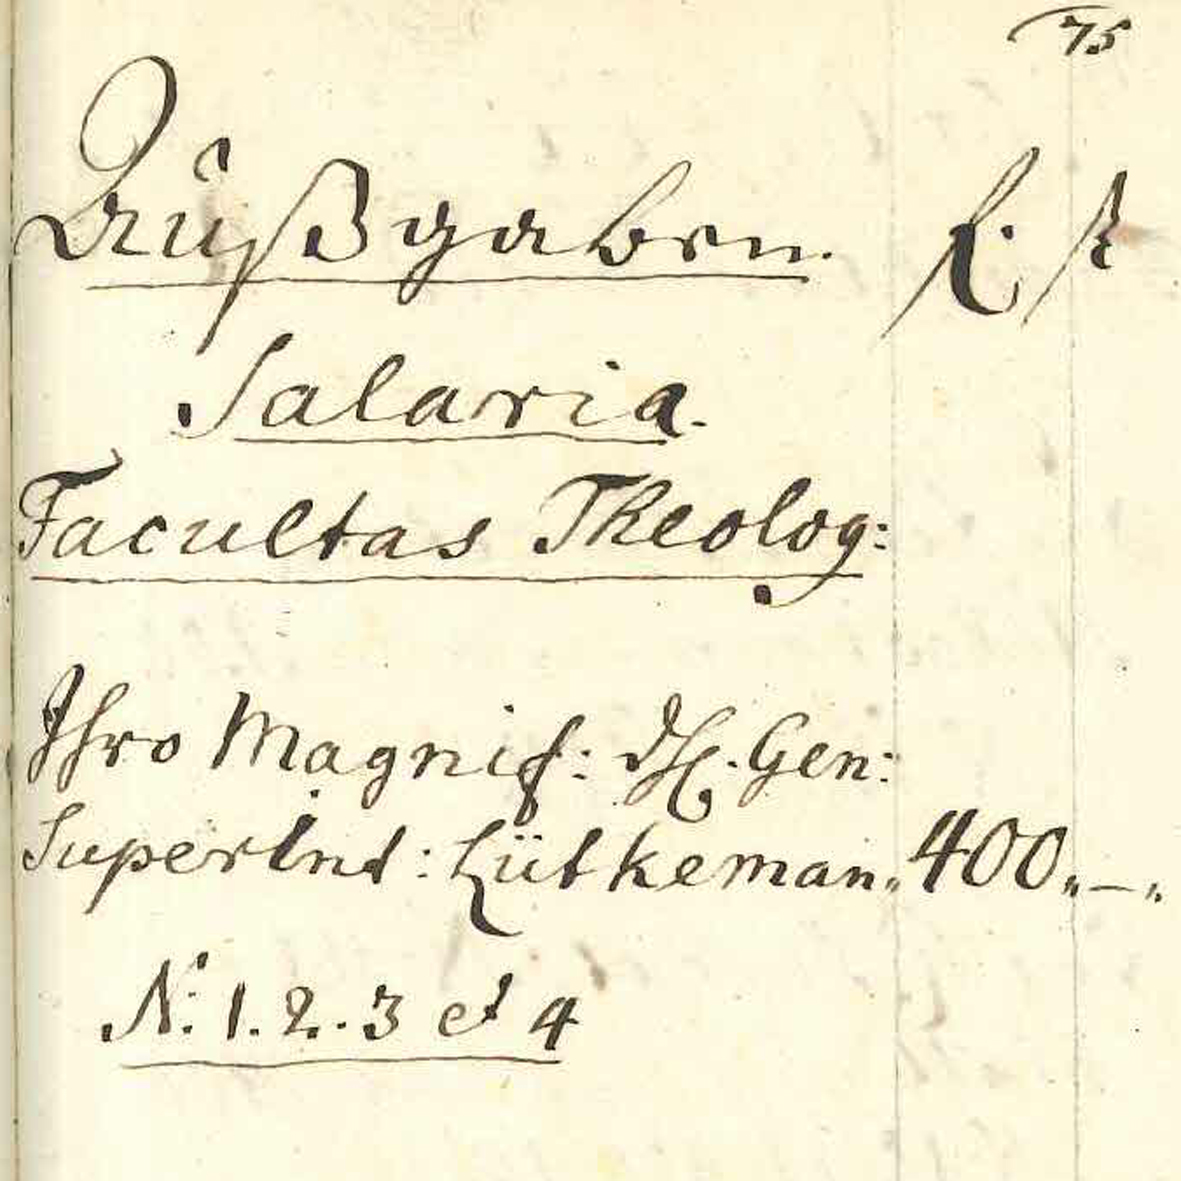 75
Außgaben. R. ß
Salaria.
Facultas Theolog:
Ihro Magnif: H. Gen:
SuperInt: Lütkeman„ 400„ — „
N: 1. 2. 3 et 4